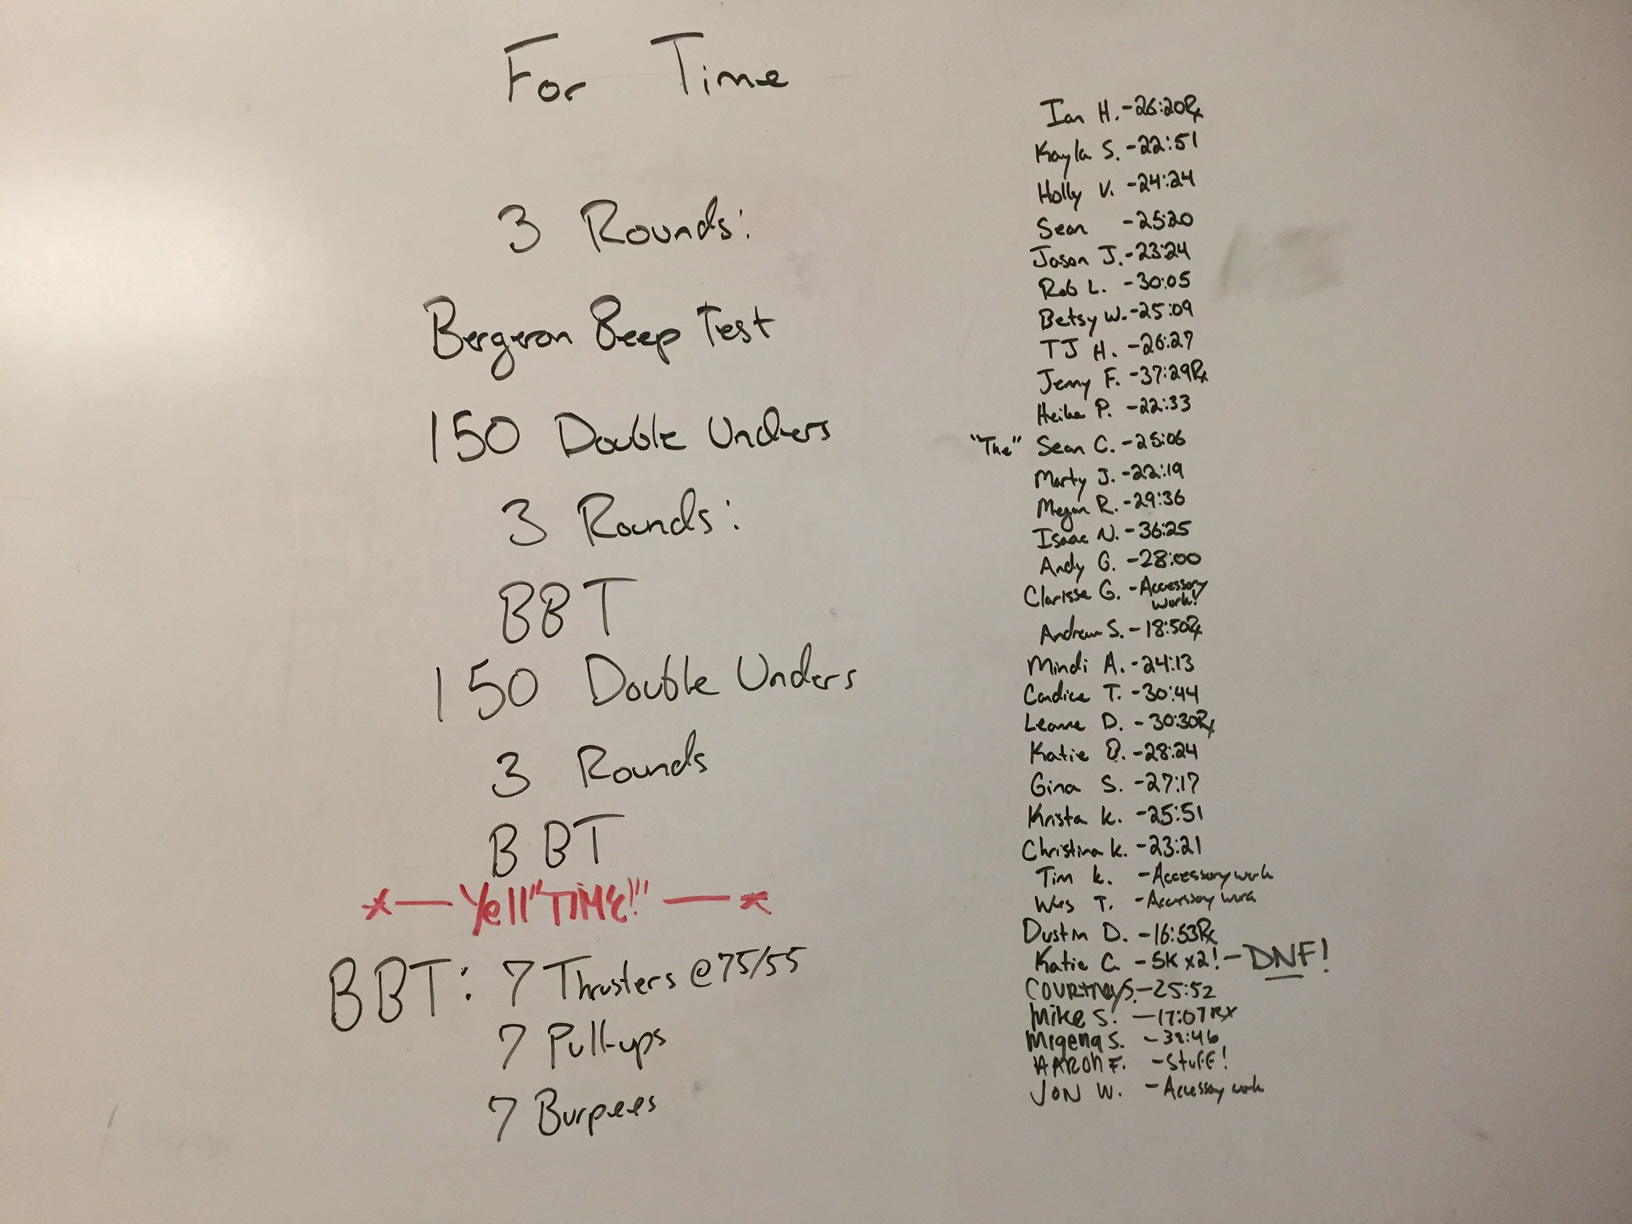 For Time
3 Rounds:
Bergeron Beep Test
150 Double Unders
3 Rounds:
BBT
150 Double Unders
3 Rounds
BBT
*— Yell "TIME!" —*
BBT: 7 Thrusters @75/55
7 Pull-ups
7 Burpees
Ian H. -26:20Rx
Kayla S. -22:51
Holly V. -24:24
Sean -25:20
Jason J. -23:24
Rob L. -30:05
Betsy W. -25:09
TJ H. -26:27
Jenny F. -37:29Rx
Heike P. -22:33
"The" Sean C. -25:06
Marty J. -22:19
Megan R. -29:36
Isaac N. -36:25
Andy G. -28:00
Clarisse G. -Accessory
work!
Andrew S. -18:50Rx
Mindi A. -24:13
Candice T. -30:44
Leanne D. -30:30Rx
Katie -28:24
Gina S. -27:17
Krista K. -25:51
Christina K. -23:21
Tim K. -Accessory work
Wes T. -Accessory work
Dustin D. -16:53Rx
Katie C. -5K x2! -DNF!
COURTNEY S. -25:52
Mike S. -17:07RX
Mrgena S. -38:46
AARON F. -STUFF!
JON W. -Accessory work